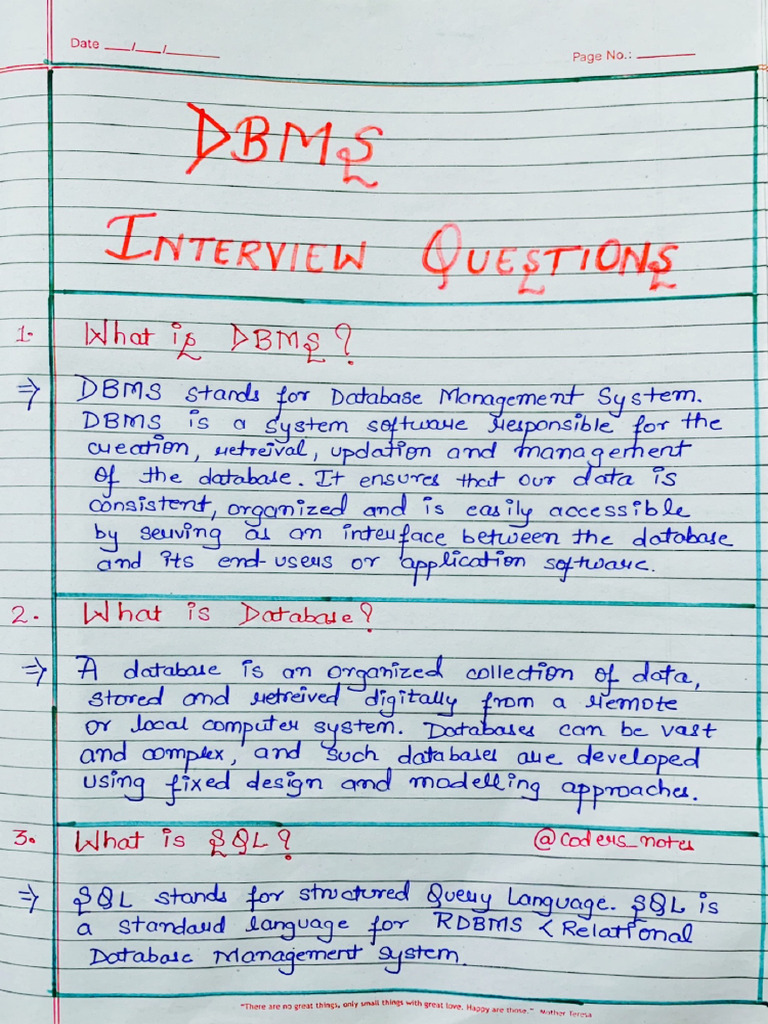 Date __/__/____
Page No.: ____
DBMS
INTERVIEW QUESTIONS
1. What is DBMS?
⇒ DBMS stands for Database Management System.
DBMS is a system software responsible for the
creation, retreival, updation and management
of the database. It ensures that our data is
consistent, organized and is easily accessible
by serving as an interface between the database
and its end-users or application software.
2. What is Database?
⇒ A database is an organized collection of data,
stored and retreived digitally from a remote
or local computer system. Databases can be vast
and complex, and such databases are developed
using fixed design and modelling approaches.
3. What is SQL? @coders_notes
⇒ SQL stands for structured Query Language. SQL is
a standard language for RDBMS < Relational
Database Management System.
"There are no great things, only small things with great love. Happy are those." Mother Teresa